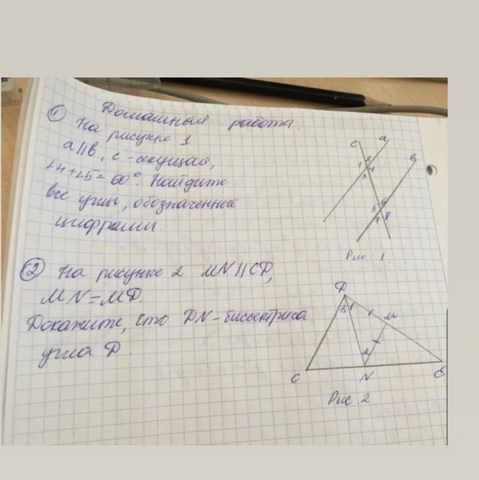 Домашняя работа.
① На рисунке 1
a || b, c - секущая,
∠4 + ∠5 = 60°. Найдите
все углы, обозначенные
цифрами
② На рисунке 2 MN || CD,
MN = MD.
Докажите, что DN - биссектриса
угла D.
c a
b
1 2
Рис 1
D
M
1
2
3
C N E
Рис 2